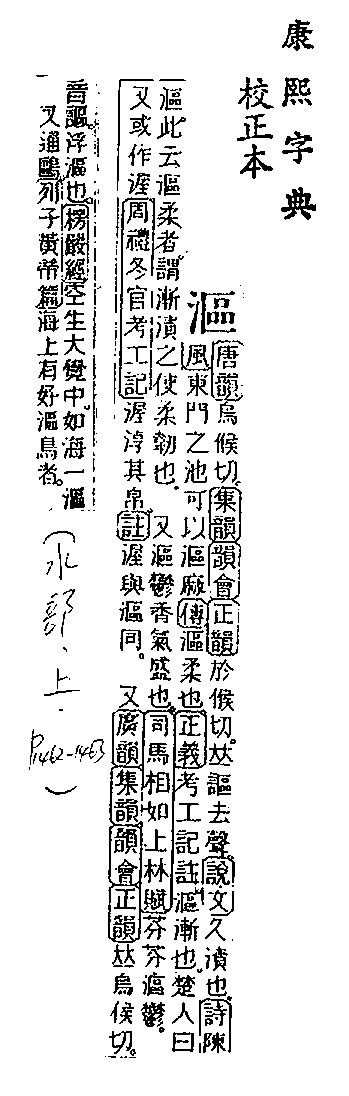 康熙字典
校正本
漚
唐韻烏候切。集韻韻會正韻於候切。𠀤謳去聲。說文久漬也。詩陳
風東門之池可以漚麻傳漚柔也正義考工記註漚漸也。楚人曰
漚此云漚柔者。謂漸漬之使柔韌也。又漚鬱香氣盛也。司馬相如上林賦芬芬漚鬱。
又或作渥周禮冬官考工記渥淳其帛。註渥與漚同。又廣韻集韻韻會正韻𠀤烏侯切。
音謳。浮漚也。楞嚴經空生大覺中。如海一漚
又通鷗。列子黃帝篇海上有好漚鳥者。
(水部、上.
P1462-1463)